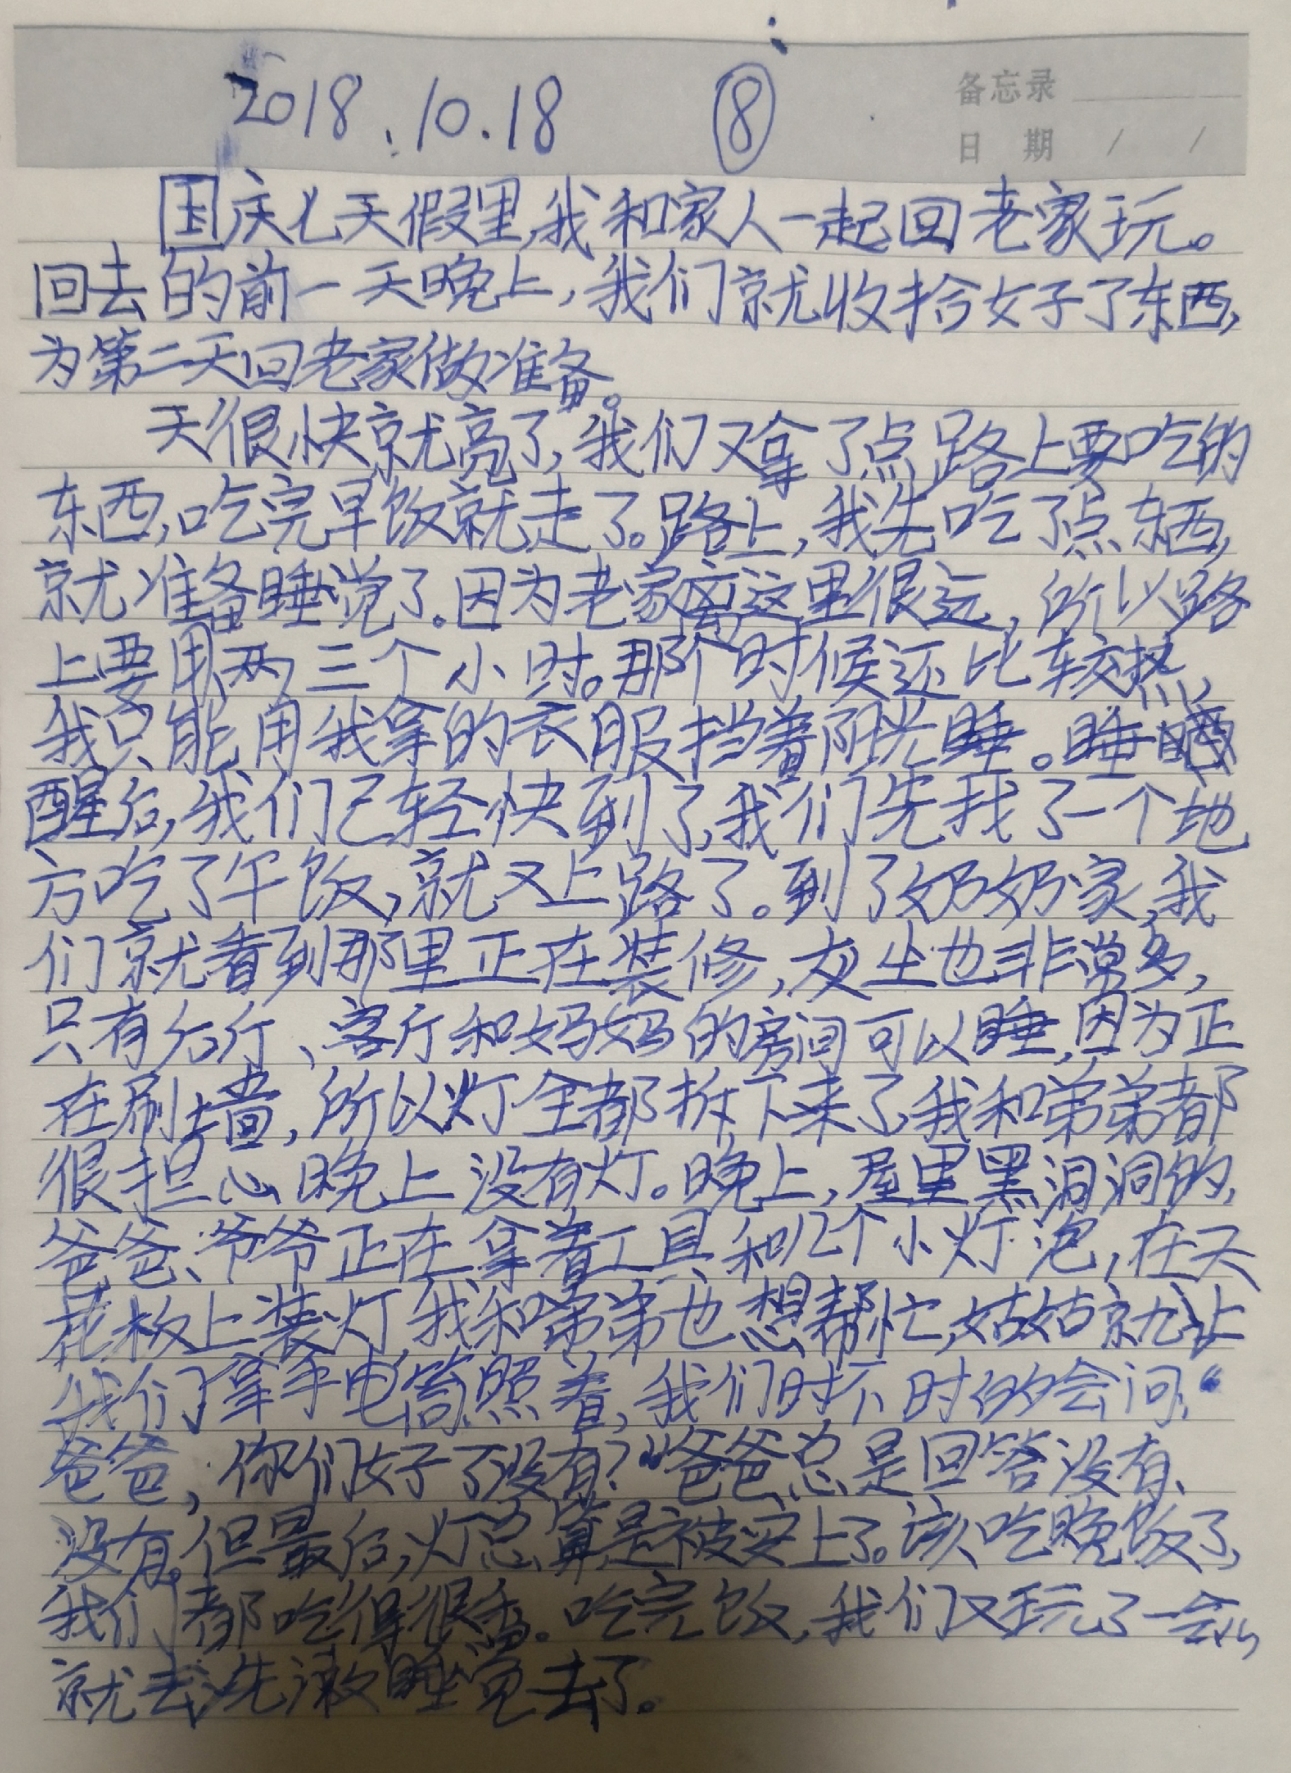 2018.10.18 ⑧
备忘录
日 期 / /
国庆七天假里,我和家人一起回老家玩。
回去的前一天晚上,我们就收拾好了东西,
为第二天回老家做准备。
天很快就亮了,我们又拿了点路上要吃的
东西,吃完早饭就走了。路上,我先吃了点东西,
就准备睡觉了。因为老家离这里很远,所以路
上要用两三个小时。那个时候还比较热,
我只能用我拿的衣服挡着阳光睡。睡
醒后,我们已轻快到了,我们先找了一个地
方吃了午饭,就又上路了。到了奶奶家,我
们就看到那里正在装修,灰尘也非常多,
只有后厅、客厅和妈妈的房间可以睡,因为正
在刷墙,所以灯全都拆下来了,我和弟弟都
很担心晚上没有灯。晚上,屋里黑洞洞的,
爸爸、爷爷正在拿着工具和几个小灯泡,在天
花板上装灯,我和弟弟也想帮忙,姑姑就让
我们拿手电筒照着,我们时不时的会问:“
爸爸,你们好了没有?“爸爸总是回答没有、
没有。但最后,灯总算是被安上了。该吃晚饭了,
我们都吃得很香。吃完饭,我们又玩了一会儿
就去洗漱睡觉去了。